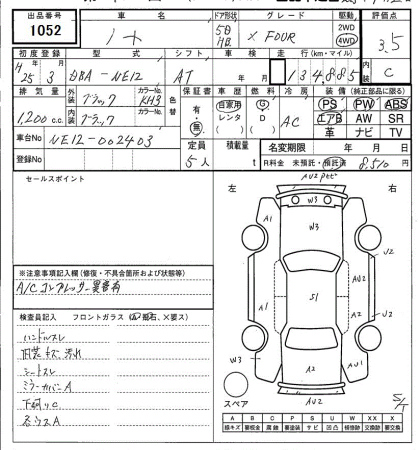 出品番号 車名 ドア形状 グレード 駆動 評価点
1052 ノート 5D HB X FOUR 2WD 4WD 3.5
初度登録 型式 シフト 車検 走行(km・マイル) 内装
H 25 3 DBA-NE12 AT 年 月 134,885 C
排気量 外装 ブラック カラーNo. KH3 色替 保証書 車歴 燃料 冷房 装備(純正部品に限る)
1,200 c.c. 内装 ブラック カラーNo. 有・無 自家用 レンタ G D AC PS PW ABS
エアB AW SR
革 ナビ TV
車台No NE12-002403 定員 積載量 名変期限 年 月 日
登録No 5人 t R料金 未預託・預託済 8,510円
セールスポイント
左 右
AU2
A1 W3
U2
A2 S1 AU2
A1 J2
W3 A2 AU1
AU2
スペア
S/T
※注意事項記入欄(修復・不具合箇所および状態等)
A/C コンプレッサー異音有
検査員記入 フロントガラス(A.飛石、X要ス)
ハンドルスレ
内装キズ 汚れ
シートスレ
ミラーカバーA
下廻りC
各ウスA
A B C P S U W XX X
線キズ 要板金 腐蝕 要塗装 サビ 凹凸 補修跡 交換跡 要交換